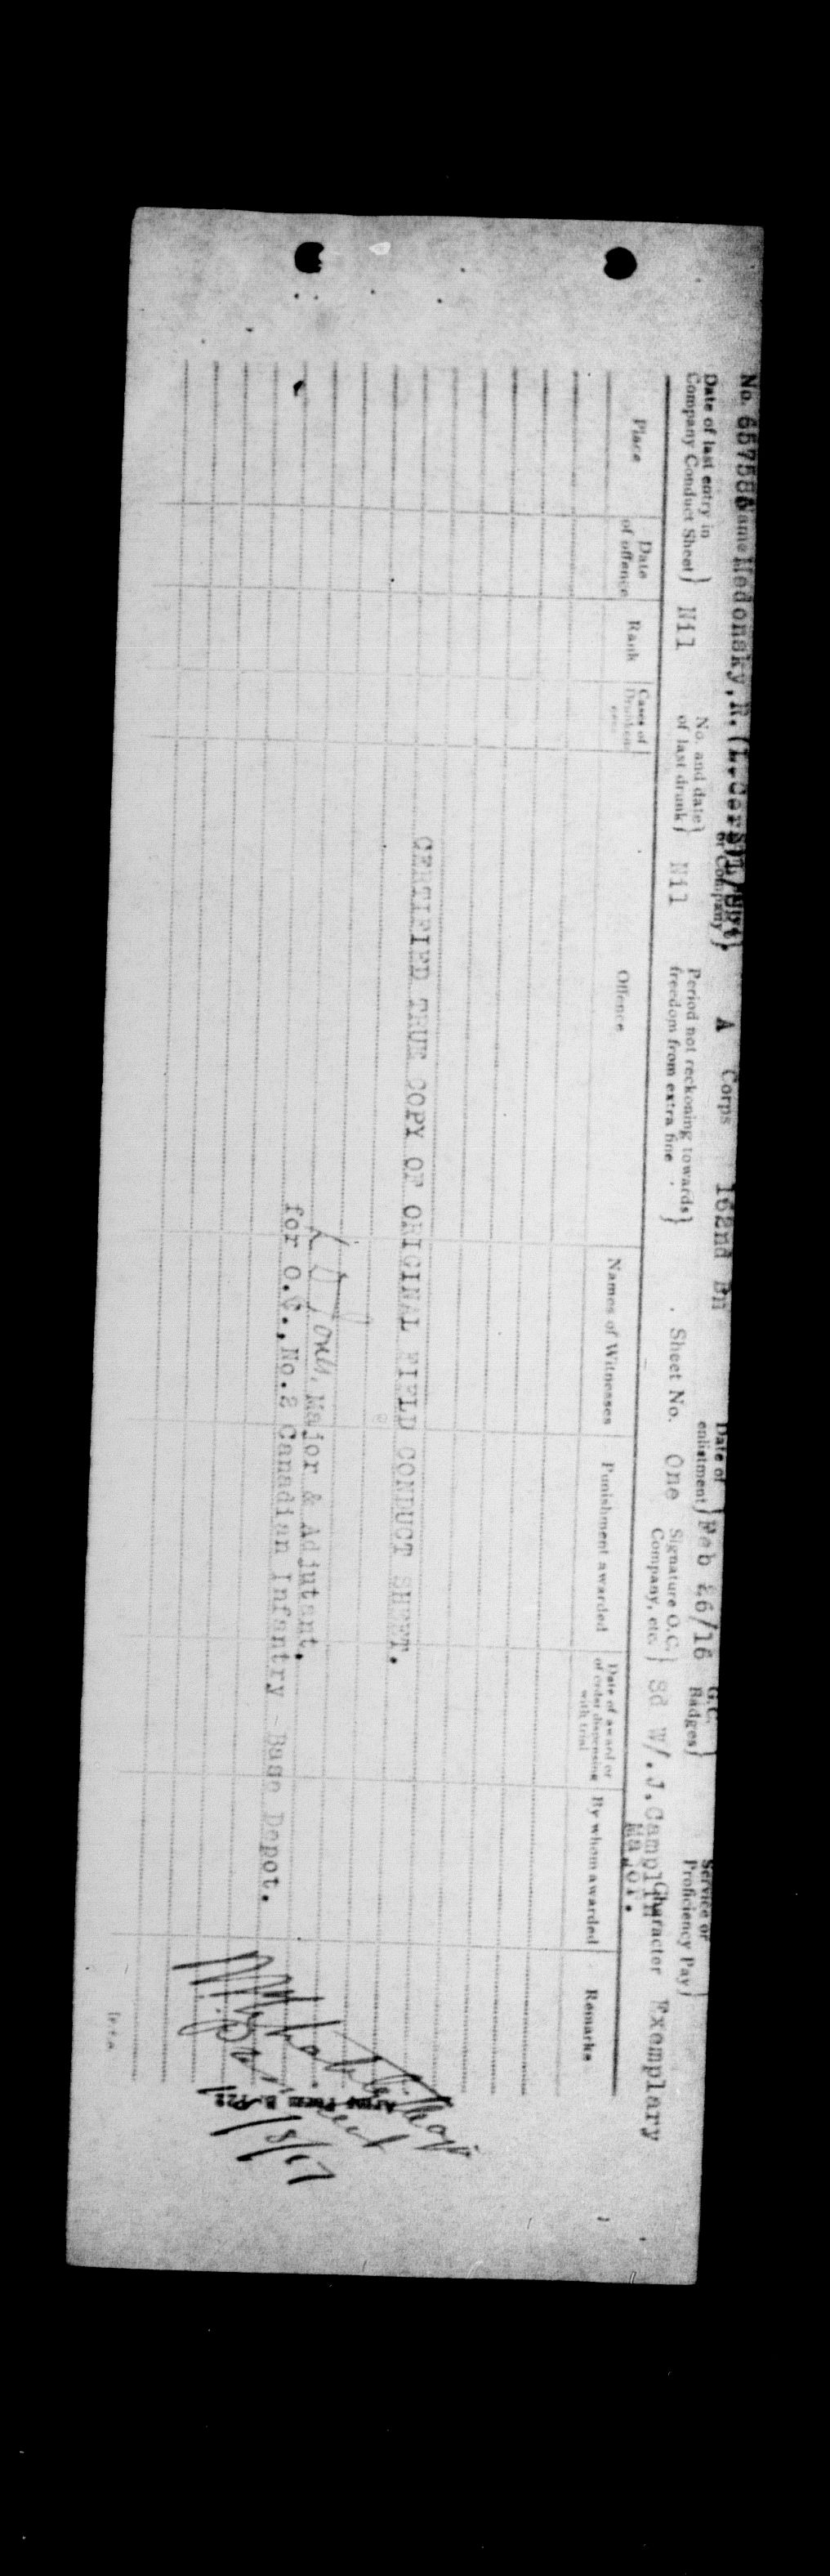 No. 657586 Name Nedonsky, R. (L.Sergt) or Company} A Corps 162nd Bn Date of enlistment} Feb 26/16 G.C. Badges} Service or Proficiency Pay}
Date of last entry in Company Conduct Sheet} Nil No. and date of last drunk} Nil Period not reckoning towards freedom from extra fine} Sheet No. One Signature O.C. Company, etc.} Sd W/.J.Camplin Major. Character Exemplary
Place Date of offence Rank Cases of Drunkenness Offence Names of Witnesses Punishment awarded Date of award or of order dispensing with trial By whom awarded Remarks
CERTIFIED TRUE COPY OF ORIGINAL FIELD CONDUCT SHEET.
Major & Adjutant,
for O.C., No.2 Canadian Infantry Base Depot.
Army Form B. 122
/8/17